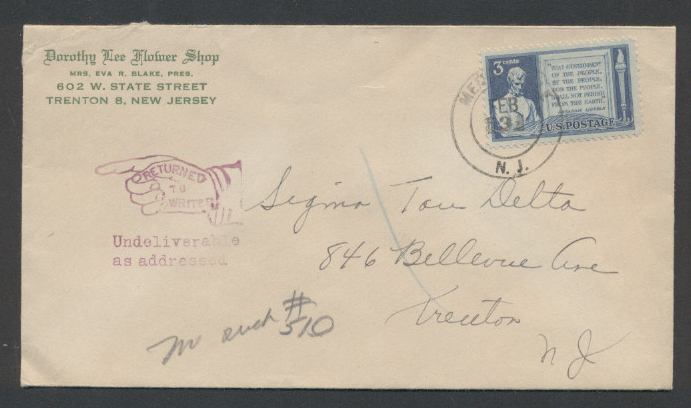 Dorothy Lee Flower Shop
MRS. EVA R. BLAKE, PRES.
602 W. STATE STREET
TRENTON 8, NEW JERSEY
3 CENTS
THAT GOVERNMENT
OF THE PEOPLE,
BY THE PEOPLE,
FOR THE PEOPLE,
SHALL NOT PERISH
FROM THE EARTH.
U.S. POSTAGE
FEB
N. J.
RETURNED
TO
WRITER
Undeliverable
as addressed
Sigma Tau Delta
846 Bellevue Ave
Trenton
N J
No such #
510